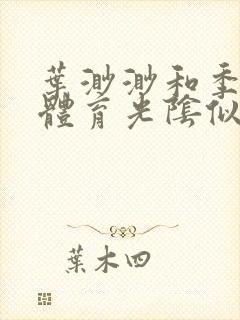 葉渺渺和季
體育光陰似
葉木四